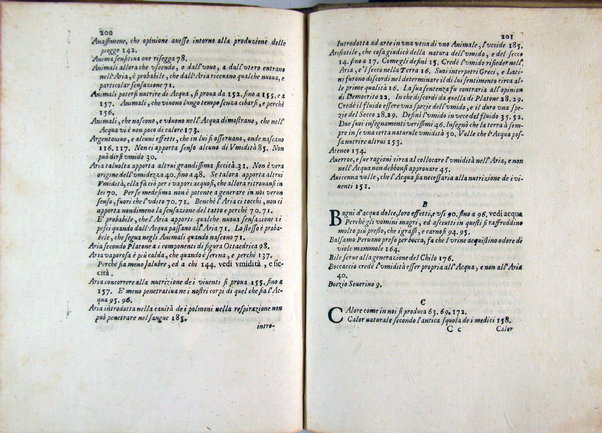 200
Anassimene, che opinione avesse intorno alla produzione delle
piogge 142.
Anima sensitiva ove risegga 78.
Animali allora che escendo, e dall'vovo, e dall'vtero entrano
nell'Aria, è probabile, che dall'Aria ricevano qualche nuova, e
particolar sensazione 71.
Animali potersi nutrire di Acqua, si prova da 152. fino a 155. e a
157. Animali, che vivono lungo tempo senza cibarsi, e perchè
156.
Animali, che nascono, e vivono nell'Acqua dimostrano, che nell'
Acqua vi è non poco di calore 173.
Argentovivo, e alcuni effetti, che in lui si osservano, onde nascano
116. 117. Non ci apporta senso alcuno di Vmidità 85. Non
può dirsi vmido 30.
Aria talvolta apporta altrui grandissima siccità 31. Non è vera
origine dell'vmidezza 40. fino a 48. Se talora apporta altrui
Vmidità, ella fia ciò per i vapori acquosi, che allora ritrovansi in
lei 70. Per se medesima non è potente a generare in noi verun
senso, fuori che l'vdito 70. 71. Benchè l'Aria ci tocchi, non ci
apporta nondimeno la sensazione del tatto e perchè 70. 71.
E' probabile, che l'Aria apporti qualche nuova sensazione a i
vivi pesci quando dall'Acqua passano all'Aria 71. Lo stesso è proba-
bile, che segua negli Animali quando nascono 71.
Aria secondo Platone à i componenti di figura Ottaedrica 98.
Aria vaporosa è più calda, che quando è serena, e perchè 137.
Perchè sia meno salubre, ed a chi 144. vedi vmidità, e sic-
cità.
Aria concorrere alla nutrizione de i viventi si prova 155. fino a
157. E' meno penetrativa ne i nostri corpi di quel che sia l'Ac-
qua 95. 96.
Aria introdotta nella cavità de i polmoni nella respirazione non
può penetrare nel sangue 185.
intro-
201
Introdotta ad arte in una vena di uno Animale, l'uccide 185.
Aristotile, che cosa giudicò della natura dell'vmido, e del secco
14. fino a 17. Come gli definì 15. Credè l'vmido risieder nell'
Aria, e il secco nella Terra 16. Suoi interpetri Greci, e Lati-
ni furono discordi nel determinare il di lui sentimento circa al-
le prime qualità 16. La sua sentenza fu contraria all'opinion
di Democrito 22. In che discordi da quella di Platone 28.29.
Credè il fluido essere una spezie dell'vmido, e il duro una spezie
del Secco 28.29. Definì l'vmido in vece del fluido 35. 52.
Due suoi insegnamenti verissimi 46. Insegnò che la terra à sem-
pre in se una certa naturale vmidità 50. Volle che l'Acqua pos-
sa nutrire altrui 153.
Ateneo 154.
Averroe, e sue ragioni circa al collocare l'vmidità nell'Aria, e non
nell'Acqua non debbonsi approvare 45.
Avicenna volle, che l'Acqua sia necessaria alla nutrizione de i vi-
venti 151.
B
Bagni d'acqua dolce, loro effetti, e vsi 90. fino a 96. vedi acqua
Perchè gli vomini magri, ed asciutti in questi si raffreddino
molto più presto, che i grassi, e carnosi 94.95.
Balsamo Peruano preso per bocca, fa che l'urine acquistino odore di
viole mammole 164.
Bile serve alla generazione del Chilo 176.
Boccaccio credè l'vmidità esser propria all'Acqua, e non all'Aria
40.
Boezio Severino 9.
C
Calore come in noi si produca 63. 69. 172.
Calor naturale secondo l'antica squola de i medici 158.
C c
Calor